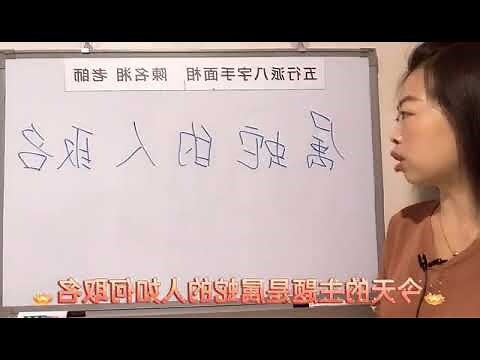 五行派八字手面相 陳名湘 老師
属蛇的人取名
今天的主题是属蛇的人如何取名